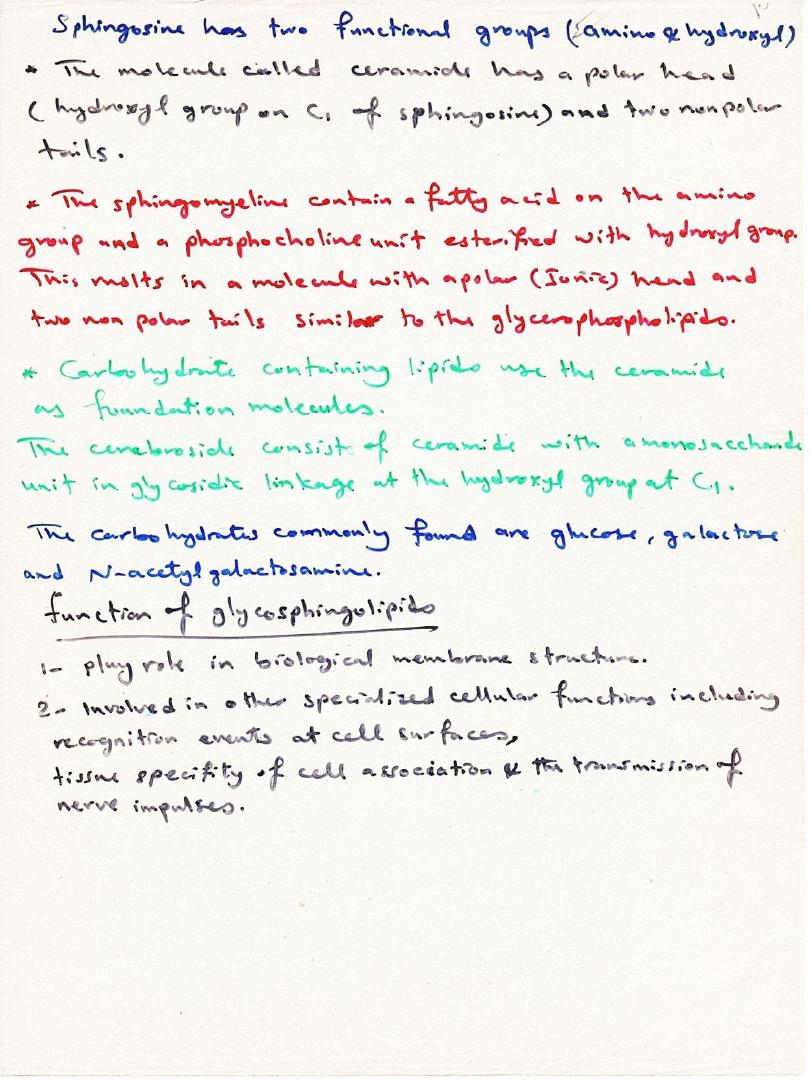 Sphingosine has two functional groups (amino & hydroxyl)
* The molecule called ceramide has a polar head
( hydroxyl group on C1 of sphingosine) and two nonpolar
tails.
* The sphingomyeline contain a fatty acid on the amino
group and a phosphocholine unit esterified with hydroxyl group.
This rsults in a molecule with a polar (Ionic) head and
two non polar tails similar to the glycerophospholipids.
* Carbohydrate containing lipids use the ceramide
as foundation molecules.
The cerebroside consist of ceramide with a monosaccharide
unit in glycosidic linkage at the hydroxyl group at C1.
The carbohydrates commonly found are glucose, galactose
and N-acetyl galactosamine.
function of glycosphingolipids
1- play role in biological membrane structure.
2- Involved in other specialized cellular functions including
recognition events at cell surfaces,
tissue specifity of cell association & the transmission of
nerve impulses.